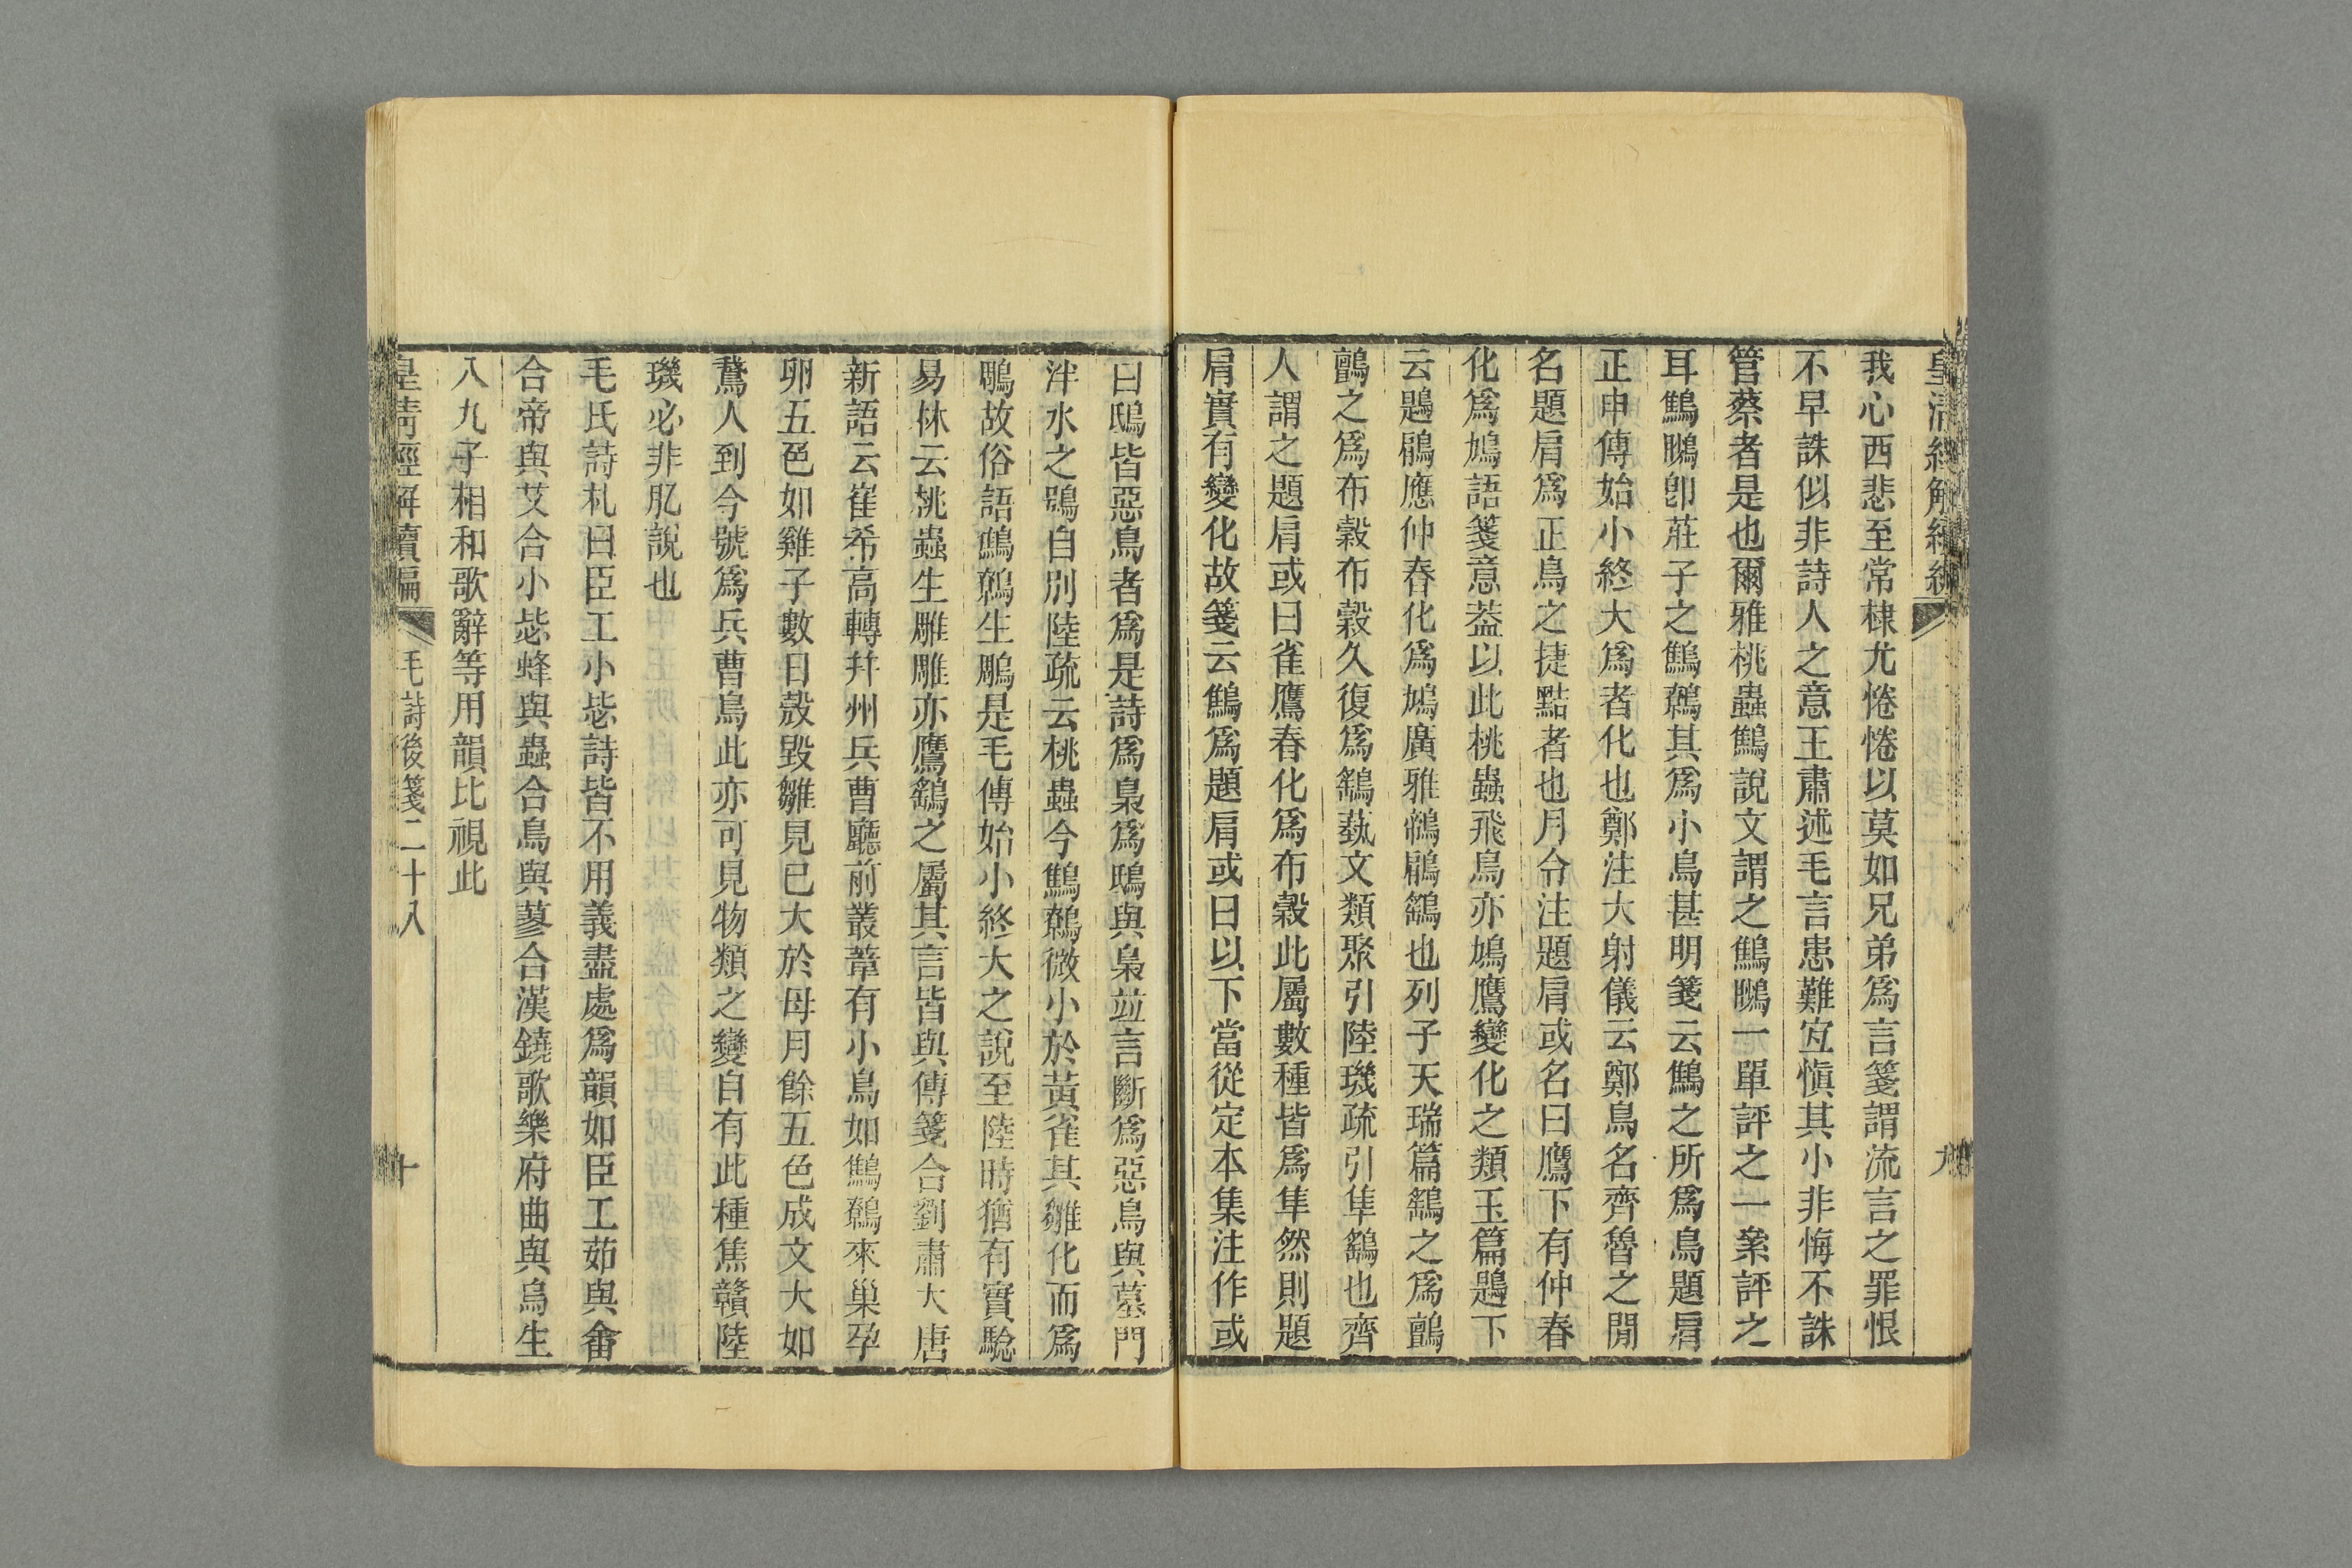 皇清經解續編
九
我心西悲至常棣尤惓惓以莫如兄弟爲言箋謂流言之罪恨
不早誅似非詩人之意王肅述毛言患難宐愼其小非悔不誅
管蔡者是也爾雅桃蟲鷦說文謂之鷦䳟一單評之一絫評之
耳鷦䳟卽莊子之鷦鷯其爲小鳥甚明箋云鷦之所爲鳥題肩
正申傳始小終大爲者化也鄭注大射儀云鄭鳥名齊魯之閒
名題肩爲正鳥之捷點者也月令注題肩或名曰鷹下有仲春
化爲鳩語箋意葢以此桃蟲飛鳥亦鳩鷹變化之類玉篇鶗下
云鶗鶥應仲春化爲鳩廣雅鶙鶥鷂也列子天瑞篇鷂之爲鸇
鸇之爲布穀布穀久復爲鷂蓺文類聚引陸璣疏引隼鷂也齊
人謂之題肩或曰雀鷹春化爲布穀此屬數種皆爲隼然則題
肩實有變化故箋云鷦爲題肩或曰以下當從定本集注作或
曰鴟皆惡鳥者爲是詩爲梟爲鴟與梟竝言斷爲惡鳥與墓門
泮水之鴞自別陸疏云桃蟲今鷦鷯微小於黃雀其雛化而爲
鵰故俗語鷦鷯生鵰是毛傳始小終大之說至陸時猶有實驗
易林云桃蟲生雕雕亦鷹鷂之屬其言皆與傳箋合劉肅大唐
新語云崔希高轉幷州兵曹廳前叢葦有小鳥如鷦鷯來巢孕
卵五色如雞子數日殼毀雛見已大於母月餘五色成文大如
鵞人到今號爲兵曹鳥此亦可見物類之變自有此種焦贛陸
璣必非肊說也
毛氏詩札曰臣工小毖詩皆不用義盡處爲韻如臣工茹與畬
合帝與艾合小毖蜂與蟲合鳥與蓼合漢鐃歌樂府曲與烏生
八九子相和歌辭等用韻比視此
皇清經解續編
毛詩後箋二十八
十